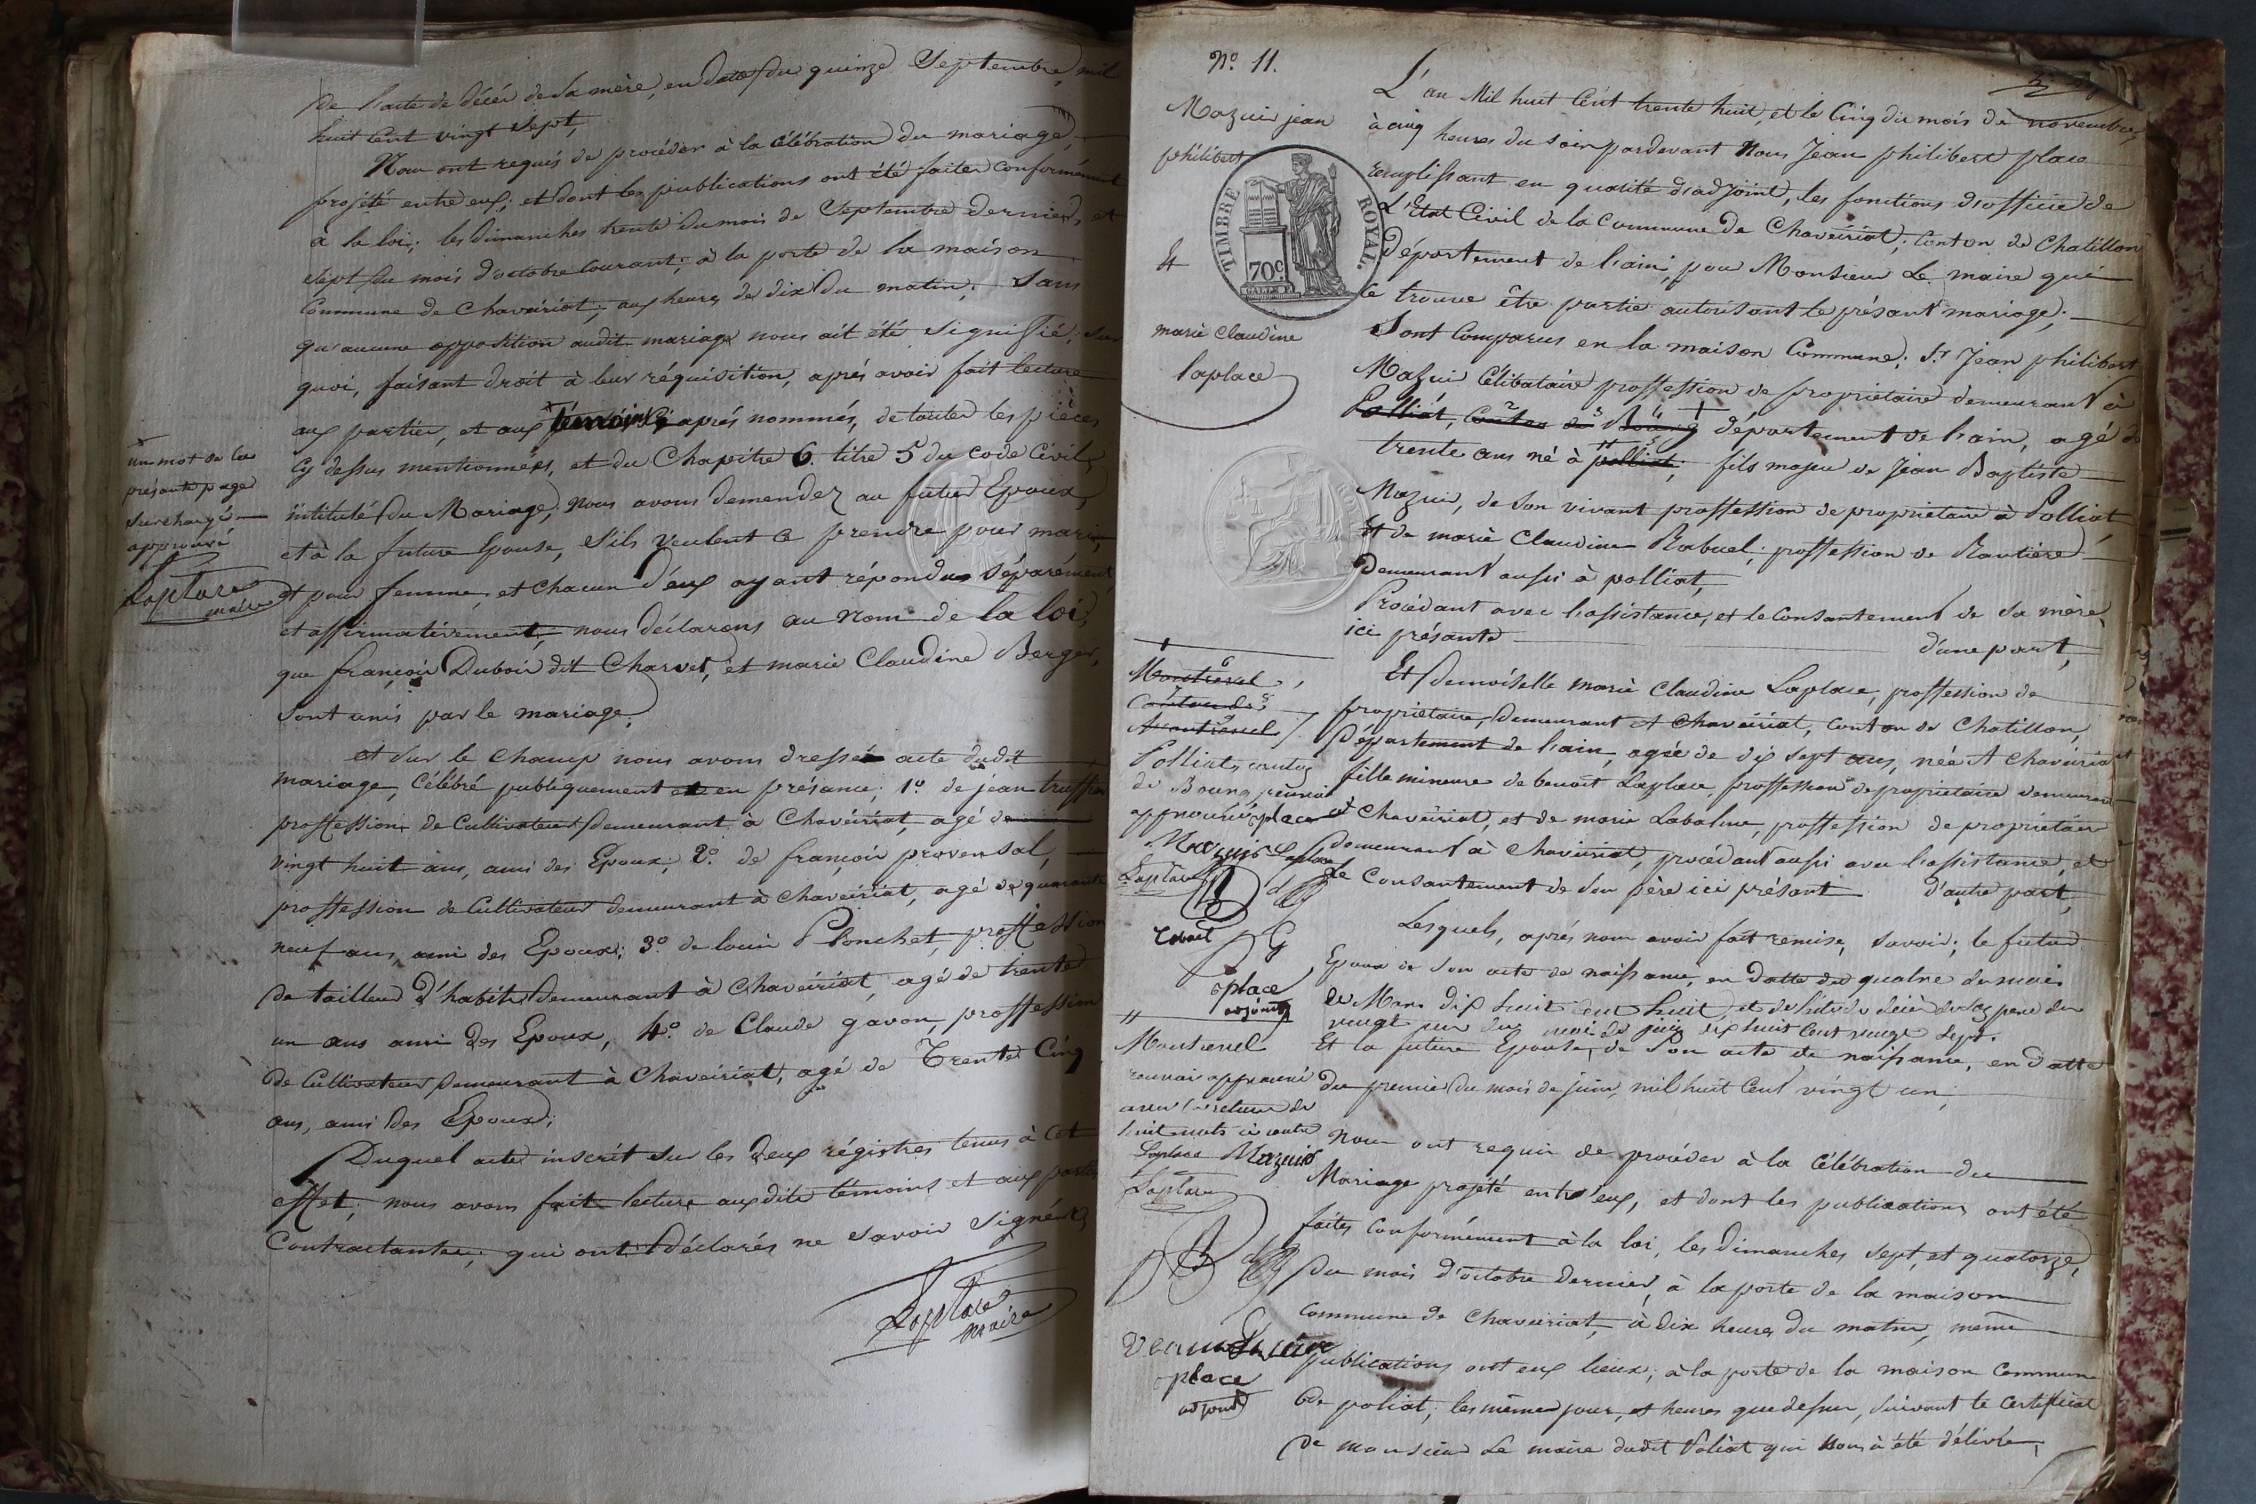 de l'acte de décés de sa mère, en date du quinze Septembre, mil
huit Cent vingt Sept,
Nous ont requis de procéder à la Célébration du mariage,
projété entre eux; et dont les publications ont été faites conformément
à la loi; les dimanches trente du mois de Septembre dernier, et
Sept du mois d'octobre Courant; à la porte de la maison
Commune de Chaveiriat; aux heures de dix du matin; Sans
qu'aucune opposition audit mariage nous ait été Signifié; sur
quoi, faisant droit à leur réquisition, aprés avoir fait lecture
aux parties, et aux témoins ci aprés nommés, de toutes les pièces
Cy dessus mentionnées, et du Chapitre 6. titre 5 du code Civil,
intitulé du Mariage; nous avons demendez au futur Epoux,
et à la future Epouse, S'ils veulent Se prendre pour mari,
et pour femme, et Chacun d'eux ayant répondu Séparément
et affirmativement; nous déclarons au Nom de la loi,
que françois Dubois dit Charvet, et marie Claudine Berger,
Sont unis par le mariage;
et Sur le Champ nous avons dressé acte dudit
mariage, Célébré publiquement et en présance; 1º de jean
proffession de Cultivateur demeurant à Chaveiriat, agé de
vingt huit ans, ami des Epoux; 2º. de françois provensal,
proffession de Cultivateur demeurant à chaveiriat, agé de quarante
neuf ans, ami des Epoux; 3º. de louis Ponchet, proffession
de tailleur d'habits demeurant à Chaveiriat, agé de trente
un ans ami des Epoux, 4º. de Claude gavon, proffession
de Cultivateur demeurant à Chaveiriat, agé de Trente Cinq
ans, ami des Epoux;
Duquel acte inscrit Sur les deux régistres tenus à cet
effet; nous avons fait lecture auxdits témoins, et aux parties
Contractantes; qui ont déclarés ne Savoir Signé
Laplace
maire
un mot de la
présante page
Surchargé
approuvé
Laplace
maire
Nº. 11.
Mazuir jean
philibert
&
marie Claudine
laplace
TIMBRE ROYAL.
70c.
L'an Mil huit Cent trente huit, et le Cinq du mois de novembre,
à cinq heures du Soir pardevant Nous Jean philibert place
remplissant en qualité d'adjoint, les fonctions d'officié de
L'Etat Civil de la Commune de Chaveiriat; Canton de Chatillon
département de l'ain, pour Monsieur Le maire qui
Ce trouve être partie autorisant le présant mariage;
Sont Comparus en la maison Commune; Sr Jean philibert
Mazuir Célibataire proffession de propriétaire demeurant à
Polliat, Canton de Bourg département de l'ain, agé de
trente ans né à polliat; fils majeur de Jean Baptiste
Mazuir, de Son vivant proffession de propriétaire à Polliat,
Et de marie Claudine Rabuel; proffession de Rantière
Demeurant aussi à polliat,
Procédant avec l'assistance, et le Consantement de Sa mère,
ici présante d'une part,
Et demoiselle marie Claudine Laplace, proffession de
propriétaire, demeurant à Chaveiriat, Canton de Chatillon,
Département de l'ain, agée de dix Sept ans, née à Chaveiriat
fille mineure de benoit Laplace, proffession de propriétaire demeurant
à Chaveiriat, et de marie Labalme, proffession de propriétaire
demeurant à Chaveiriat, procédant aussi avec l'assistance, et
Le Consantement de Son père ici présant d'autre part,
Lesquels, aprés nous avoir fait remise, Savoir; le futur
Epoux de Son acte de naissance, en datte du quatre du mois
de Mars dix huit cent huit, et de celui de décès de Son père du
vingt un du mois de juin dix huit Cent vingt Sept.
Et la future Epouse, de Son acte de naissance, en datte
du premier du mois de juin, mil huit Cent vingt un;
Nous ont requis de procéder à la Célébration du
Mariage projeté entr'eux, et dont les publications ont été
faites Conformément à la loi, les dimanches Sept, et quatorze,
Du mois d'octobre Dernier, à la porte de la maison
Commune de Chaveiriat, à dix heures du matin, même
publications ont eux lieux; à la porte de la maison Commune
de poliat; les mêmes jours, et heures que dessus, Suivant le Certificat
de monsieur Le maire dudit Poliat qui nous à été délivré,
Montrevel,
Canton de
Montrevel
Polliat, canton
de Bourg renvoi
approuvé place
Mazuir Laplace
Laplace
place
adjoint
Montrevel
renvoi approuvé
avec la rature de
huit mots ci contre
Laplace Mazuir
Laplace
place
adjoint